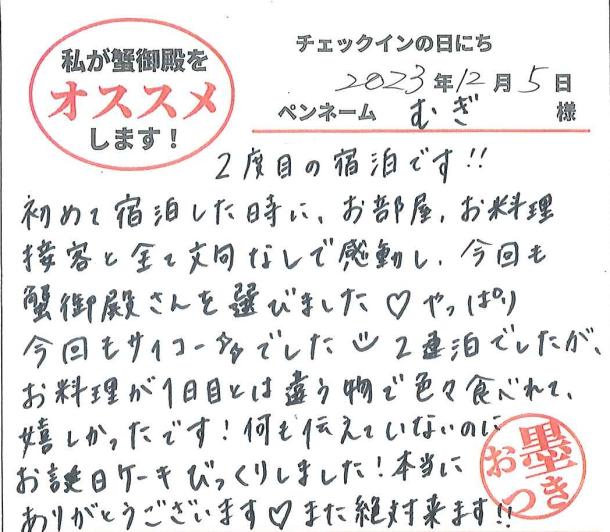 私が蟹御殿を
オススメ
します！
チェックインの日にち
2023年12月5日
ペンネーム むぎ 様
2度目の宿泊です!!
初めて宿泊した時に、お部屋、お料理
接客と全て文句なしで感動し、今回も
蟹御殿さんを選びました♡やっぱり
今回もサイコーでした 2連泊でしたが、
お料理が1日目とは違う物で色々食べれて、
嬉しかったです！何も伝えていないのに
お誕日ケーキびっくりしました！本当に
ありがとうございます♡また絶対来ます!!
お墨つき